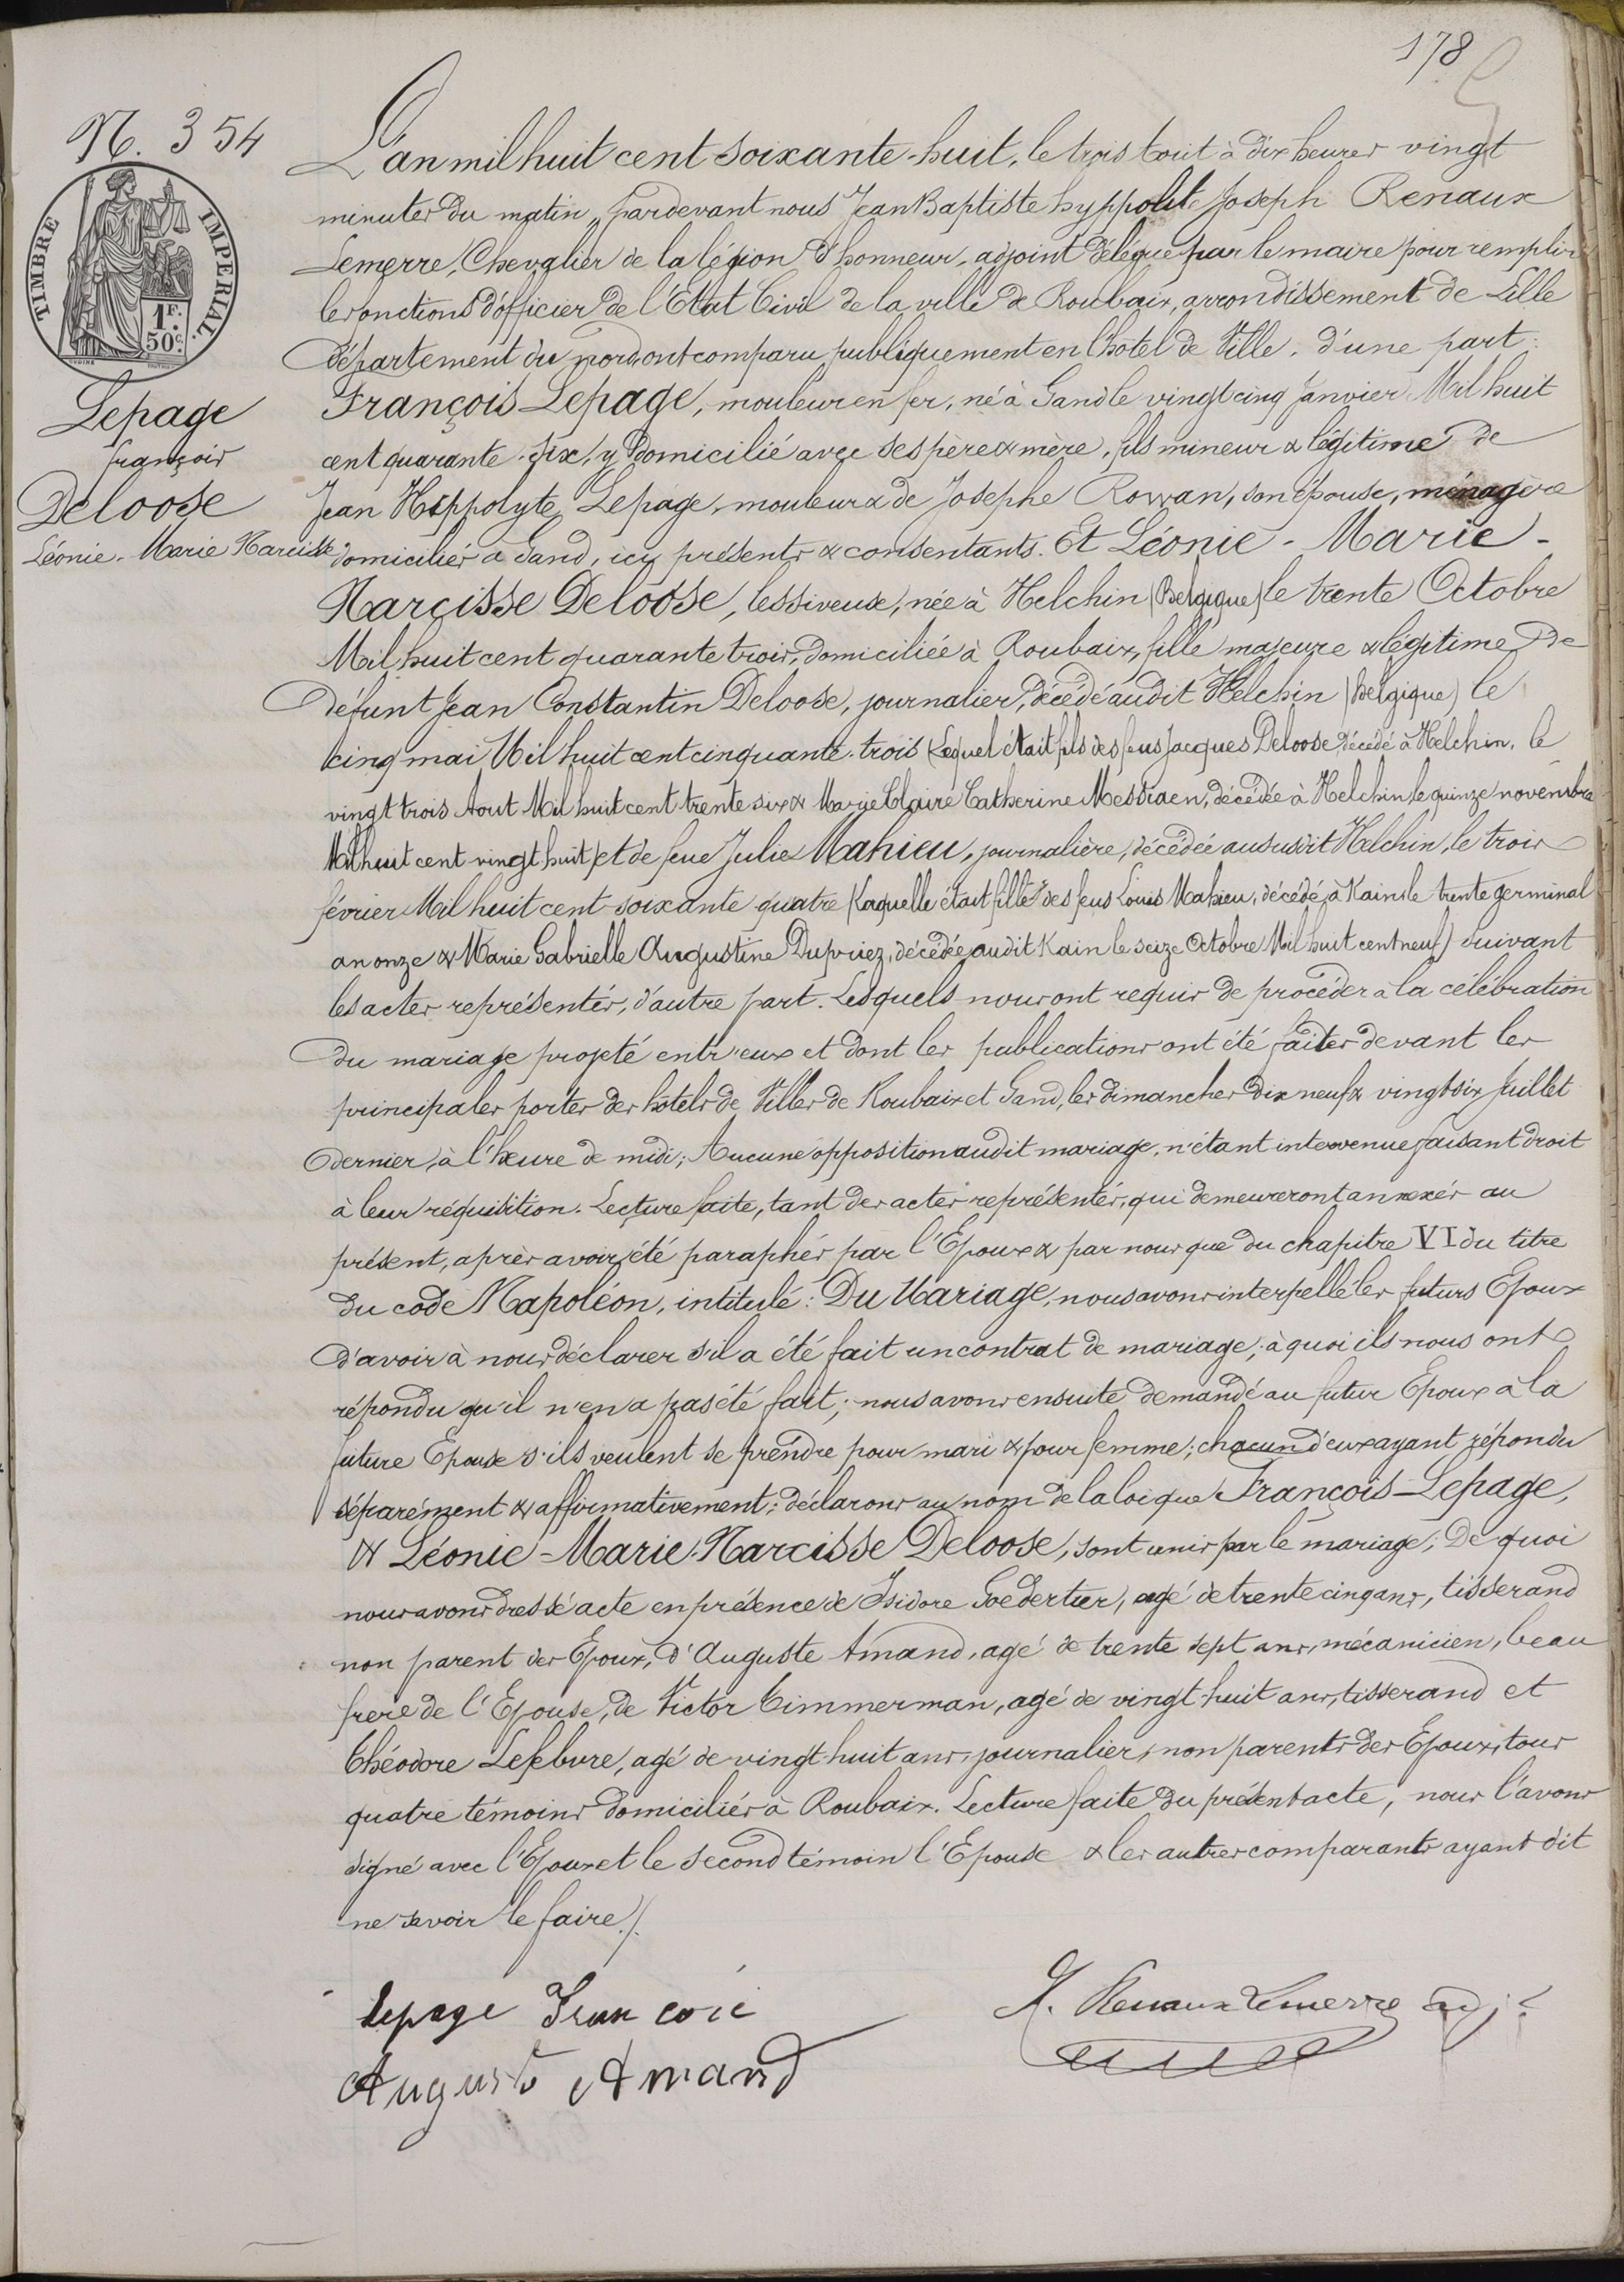 178
N. 354
TIMBRE IMPERIAL.
1F. 50c.
Lepage
françois
Deloose
Léonie-Marie Narcisse
L'an mil huit cent soixante-huit, le trois tout à dix heures vingt
minutes du matin, pardevant nous Jean Baptiste hyppolite Joseph Renaux
Lemerre, Chevalier de la légion d'honneur, adjoint délégué par le maire pour remplir
les fonctions d'officier de l'Etat Civil de la ville de Roubaix, arrondissement de Lille
département du nord, ont comparu publiquement en l'hotel de Ville. d'une part:
François Lepage, mouleur en fer, né à Gand le vingt cinq Janvier Mil huit
cent quarante-six, y domicilié avec ses père & mère, fils mineur & légitime de
Jean Hippolyte Lepage, mouleur & de Josephe Rowan, son épouse, ménagère
domiciliés à Gand, icy présents & consentants. Et Léonie-Marie-
Narcisse Deloose, lessiveuse, née à Helchin (Belgique) le trente Octobre
Mil huit cent quarante trois, domiciliée à Roubaix, fille majeure & légitime de
défunt Jean Constantin Deloose, journalier, décédé audit Helchin (belgique) le
cinq mai Mil huit cent cinquante-trois (Lequel était fils des feus Jacques Deloose décédé à Helchin, le
vingt trois Aout Mil huit cent trente six & Marie Claire Catherine Messiaen, décédée à Helchin le quinze novembre
Mil huit cent vingt huit) et de feue Julie Mahieu, journalière, décédée au susdit Helchin, le trois
février Mil huit cent soixante quatre (Laquelle était fille des feus Louis Mahieu, décédé à Kain le trente germinal
an onze & Marie Gabrielle Augustine Dupriez, décédée audit Kain le seize Octobre Mil huit cent neuf) suivant
les actes représentés, d'autre part. Lesquels nous ont requis de procéder à la célébration
du mariage projeté entr'eux et dont les publications ont été faites devant les
principales portes des hôtels de Villes de Roubaix et Gand, les dimanches dix neuf & vingt six Juillet
dernier, à l'heure de midi; Aucune opposition audit mariage, n'étant intervenue, faisant droit
à leur réquisition. Lecture faite, tant des actes représentés, qui demeureront annexés au
présent, après avoir été paraphés par l'Epoux & par nous que du chapitre VI du titre
du code Napoléon, intitulé: Du Mariage, nous avons interpellé les futurs Epoux
d'avoir à nous déclarer s'il a été fait un contrat de mariage; à quoi ils nous ont
répondu qu'il n'en a pas été fait; nous avons ensuite demandé au futur Epoux à la
future Epouse s'ils veulent se prendre pour mari & pour femme; chacun d'eux ayant répondu
séparément & affirmativement; déclarons au nom de la loi que François Lepage,
& Léonie-Marie-Narcisse Deloose, sont unis par le mariage; De quoi
nous avons dressé acte en présence de Isidore Goedertier, agé de trente cinq ans, tisserand
non parent des Epoux, d'Auguste Amand, agé de trente sept ans, mécanicien, beau
frere de l'Epouse, de Victor Timmerman, agé de vingt huit ans, tisserand et
Théodore Lefebvre, agé de vingt huit ans, journalier, non parents des Epoux, tous
quatre témoins domiciliés à Roubaix. Lecture faite du présent acte, nous l'avons
signé avec l'Epoux et le second témoin l'Epouse & les autres comparants ayant dit
ne savoir le faire./.
Lepage Francois
Auguste Amand
J. Renaux Lemerre adjt